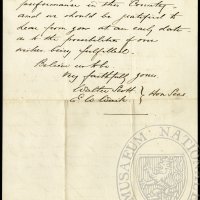 performance in this Country
and we should be grateful to
hear from you at an early date
as to the possibilities of our
wishes being fulfilled.
Believe us to be
Very faithfully yours
Walter Scott } Hon Secs
MUSAEUM: NATIONA